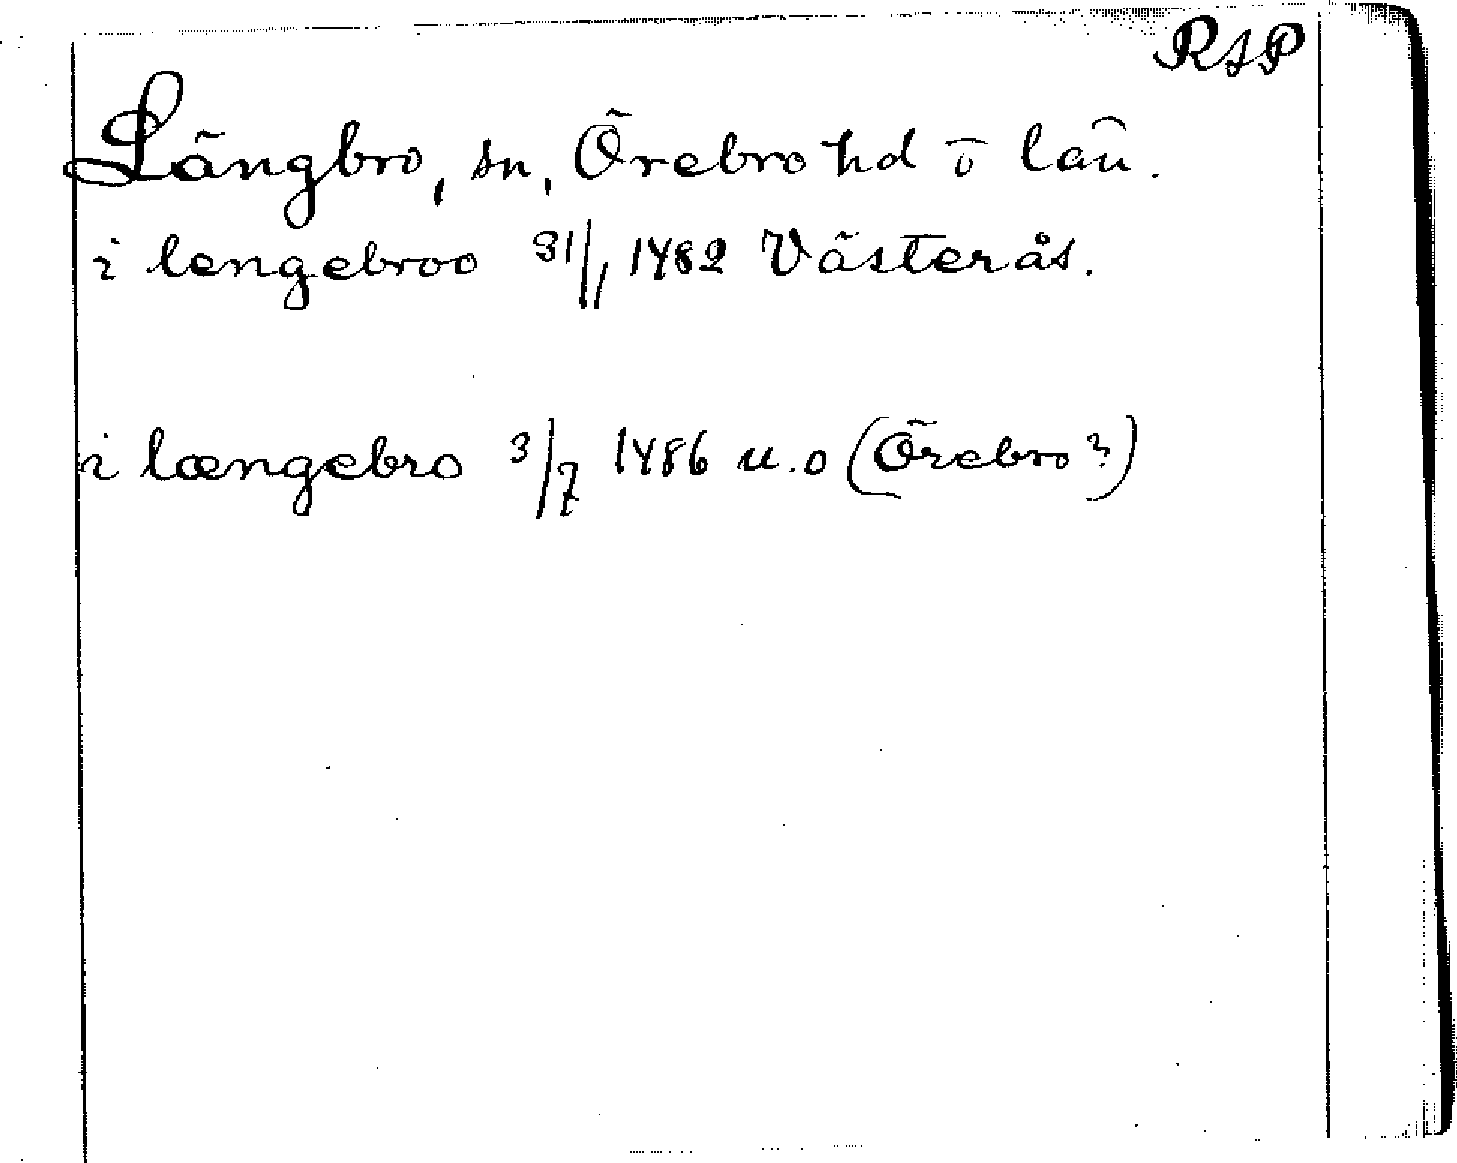 RAP
Längbro, sn, Örebro hd ō län̂.
i lengebroo 31/1 1482 Västerås.
i længebro 3/7 1486 u.o (Örebro?)